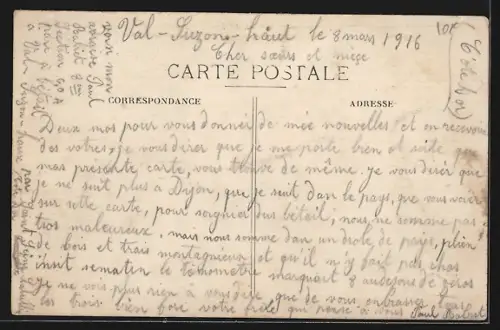 Val-Suzon-haut le 8 mars 1916
Cher sœurs et nièce
CARTE POSTALE
CORRESPONDANCE
ADRESSE
(Côte d'or)
Deux mos pour vous donner de mée nouvelles et en recevoir
des votres je vous dirér que je me porte bien et soite que
mas présente carte, vous trouve de même. je vous dirér que
je ne suit plus à Dijon, que je suit dan le pays, que vous voyer
sur sette carte, pour soignier dus betail, nous ne somme pas
tros malereux, mais nous somme dan un drole de pays, plein
de bois et trais montagnieux et qu'il n'y fait pas chos
insit sematen le termomètre marquait 8 audesous de zéros
je ne vois plus rien à vous dire, que de vous enbrasser tous
les trois bien fort votre frère qui pense à vous Paul
voisi mon
adresse Paul
section